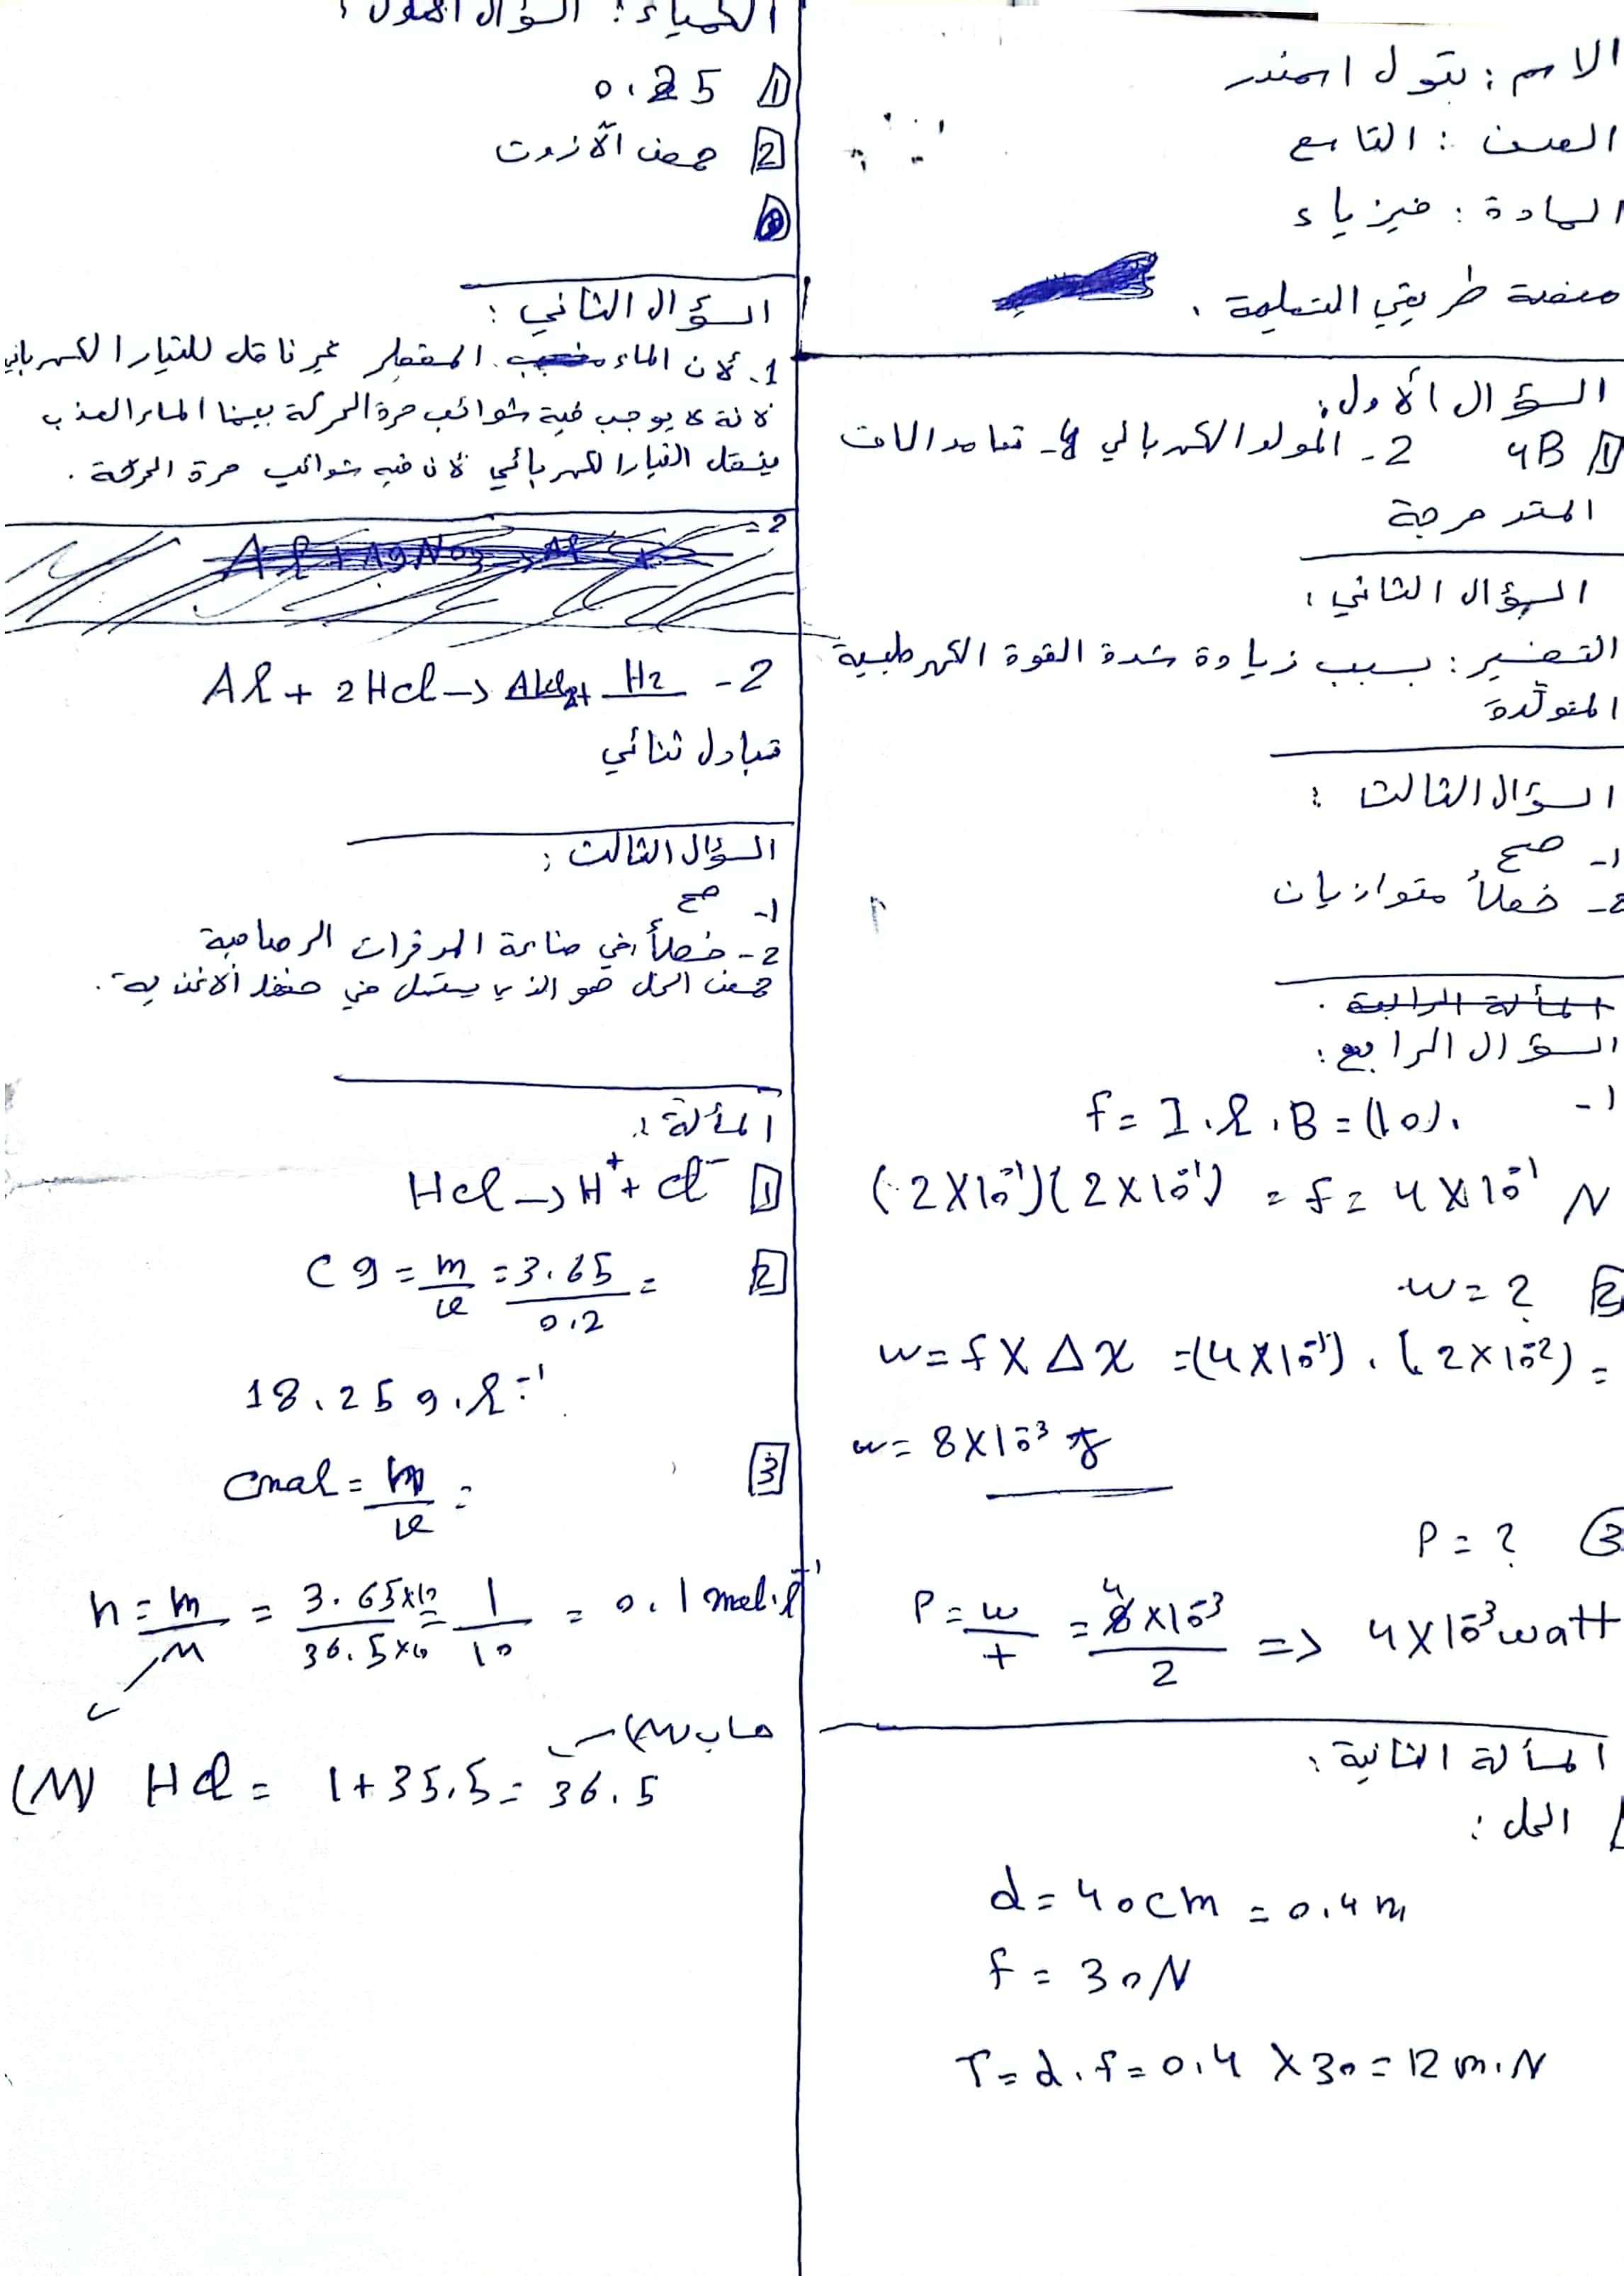 الاسم : بتول اسمندر
الصف : التاسع
المادة : فيزياء
منصة طريقي التعليمة .
السؤال الأول :
1 4B 2 - المولد الكهربائي 4 - تعامد الساق
المتدحرجة
السؤال الثاني :
التفسير : بسبب زيادة شدة القوة الكهرطيسية
المتولّدة
السؤال الثالث :
1 - صح
2 - خطأ متوازيان
المسألة الرابعة .
السؤال الرابع :
1 - f = I . l . B = (10) .
(2×10⁻¹)(2×10⁻¹) = f = 4×10⁻¹ N
2 w = ?
w = f × Δx = (4×10⁻¹) . (2×10⁻²) =
w = 8×10⁻³ J
3 P = ?
P = w/t = 8×10⁻³/2 => 4×10⁻³ watt
المسألة الثانية :
الحل :
d = 40cm = 0.4 m
f = 30N
T = d . f = 0.4 × 30 = 12 m.N
الكيمياء : السؤال الأول :
1 0.25
2 حمض الآزوت
السؤال الثاني :
1 . لأن الماء المقطر غير ناقل للتيار الكهربائي
لانة لا يوجب فية شوائب حرة الحركة بينما الماء العذب
ينقل التيار الكهربائي لأن فيه شوائب حرة الحركة .
2 =
Al + AgNO3 → Al
2 - Al + 2Hcl → Alcl2 + H2
تبادل ثنائي
السؤال الثالث :
1 - صح
2 - خطأ ، في صناعة المدخرات الرصاصية
حمض الخل هو الذي يستعمل في حفظ الأغذية .
المسألة :
1 Hcl → H⁺ + cl⁻
2 Cg = m/v = 3.65/0.2 =
18.25 g.l⁻¹
3 Cmol = n/v =
n = m/M = 3.65×10/36.5×10 = 1/10 = 0.1 mol.l⁻¹
حساب (M)
(M) Hcl = 1+35.5 = 36.5